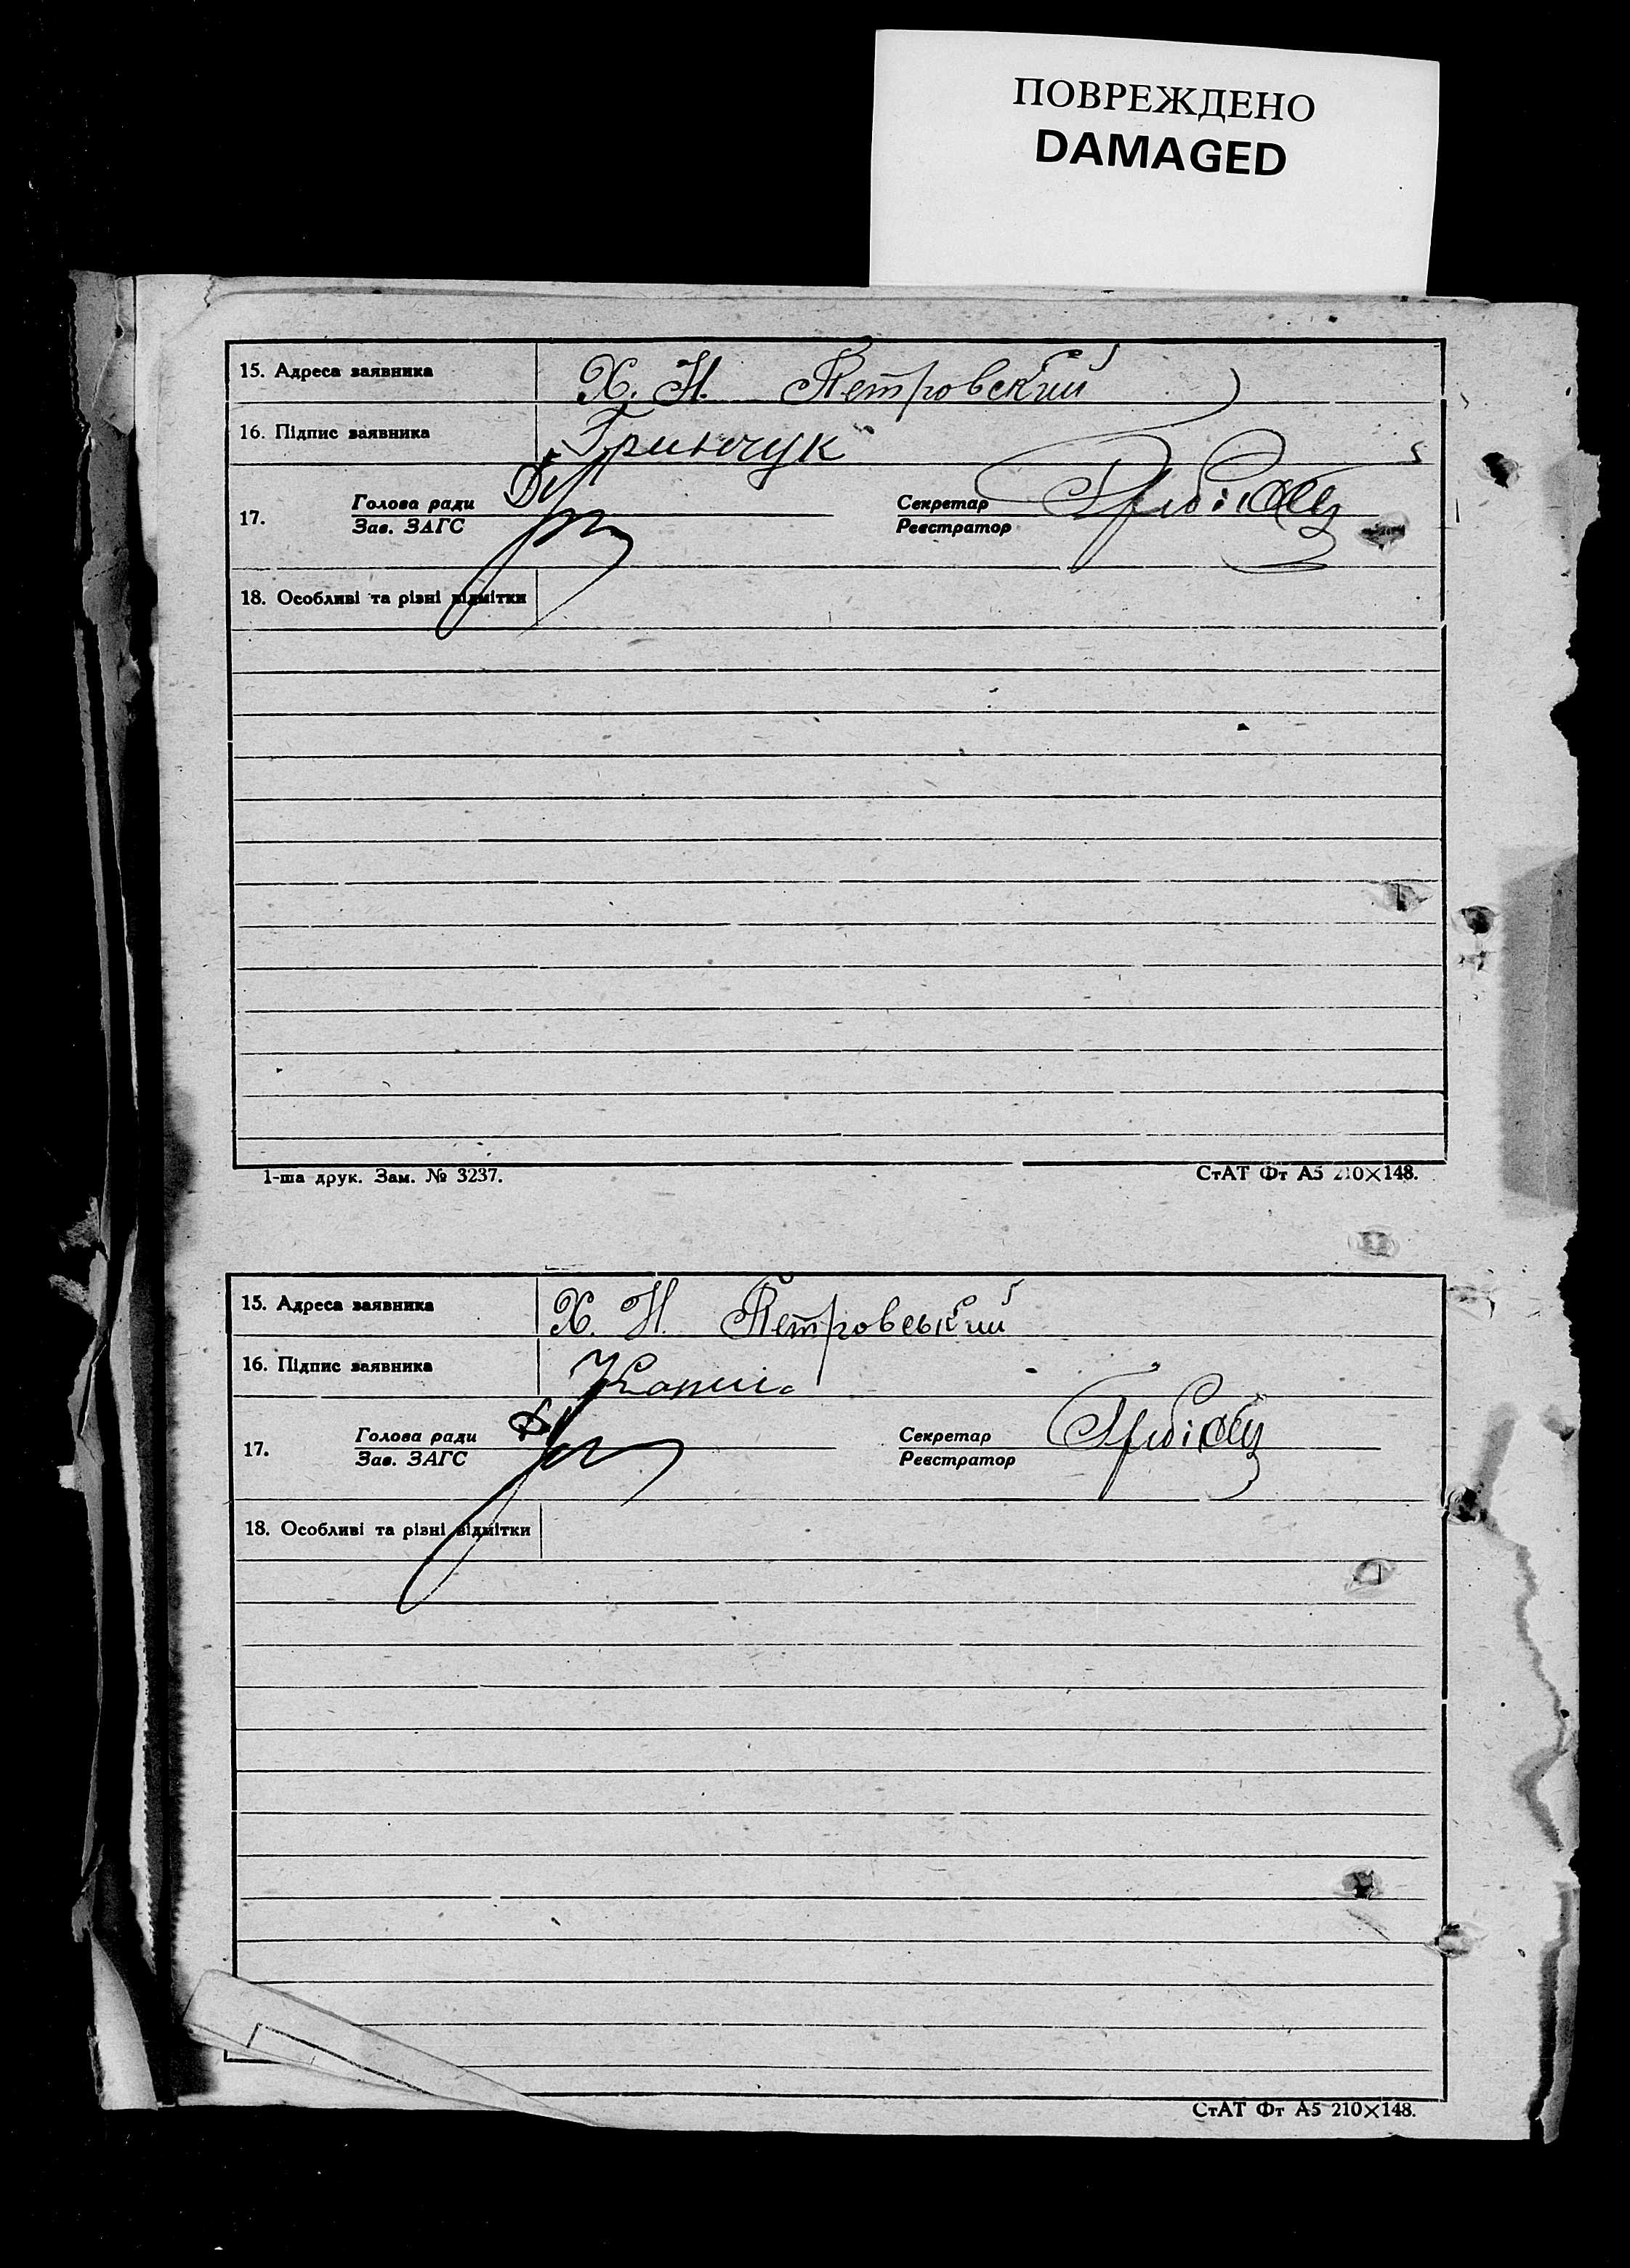 ПОВРЕЖДЕНО
DAMAGED
15. Адреса заявника Х. Н. Петровский
16. Підпис заявника Гринчук
17. Голова ради Секретар
Зав. ЗАГС Реєстратор
18. Особливі та різні відмітки
1-ша друк. Зам. № 3237. СтАТ Фт А5 210×148.
15. Адреса заявника Х. Н. Петровський
16. Підпис заявника
17. Голова ради Секретар
Зав. ЗАГС Реєстратор
18. Особливі та різні відмітки
СтАТ Фт А5 210×148.